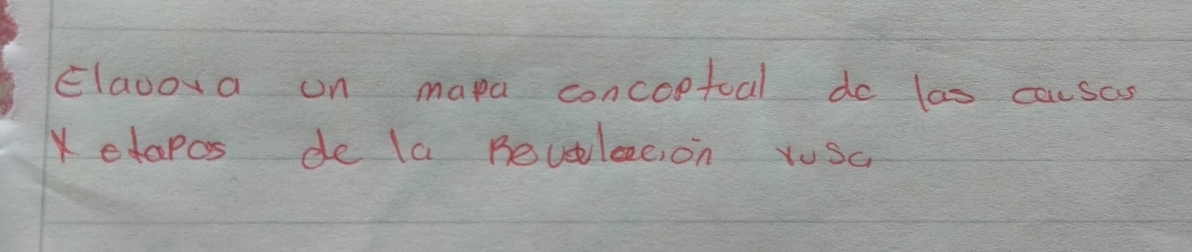 Elavora un mapa conceptual de las causas
Y etapas de la Revolución rusa